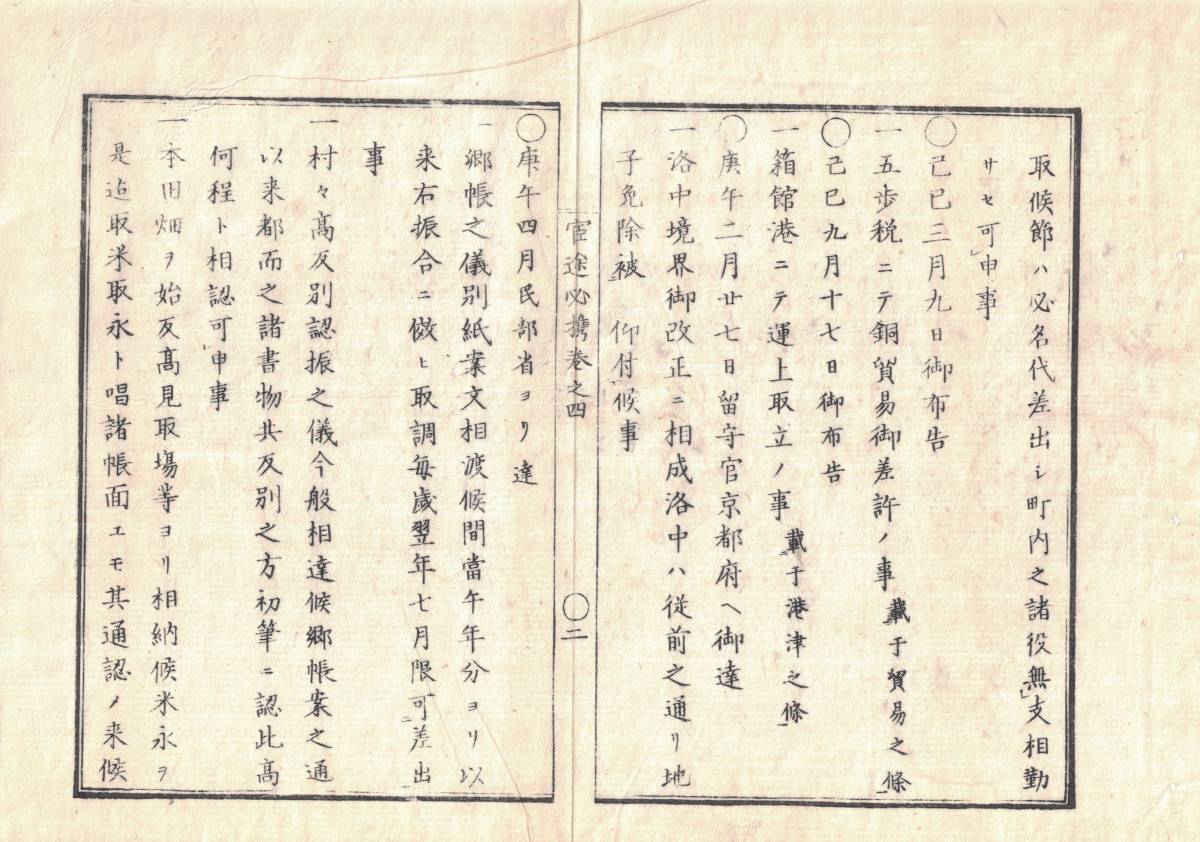 取候節ハ必名代差出シ町内之諸役無支相勤
サセ可申事
◯己巳三月九日御布告
一五歩税ニテ銅貿易御差許ノ事載于貿易之條
◯己巳九月十七日御布告
一箱館港ニテ運上取立ノ事載于港津之條
◯庚午二月廿七日留守官京都府ヘ御達
一洛中境界御改正ニ相成洛中ハ従前之通リ地
子免除被 仰付候事
官途必携巻之四 ◯二
◯庚午四月民部省ヨリ達
一郷帳之儀別紙案文相渡候間當午年分ヨリ以
来右振合ニ傚ヒ取調毎歳翌年七月限可差出
事
一村々髙反別認振之儀今般相達候郷帳案之通
以来都而之諸書物共反別之方初筆ニ認此髙
何程ト相認可申事
一本田畑ヲ始反髙見取塲等ヨリ相納候米永ヲ
是迠取米取永ト唱諸帳面エモ其通認メ来候